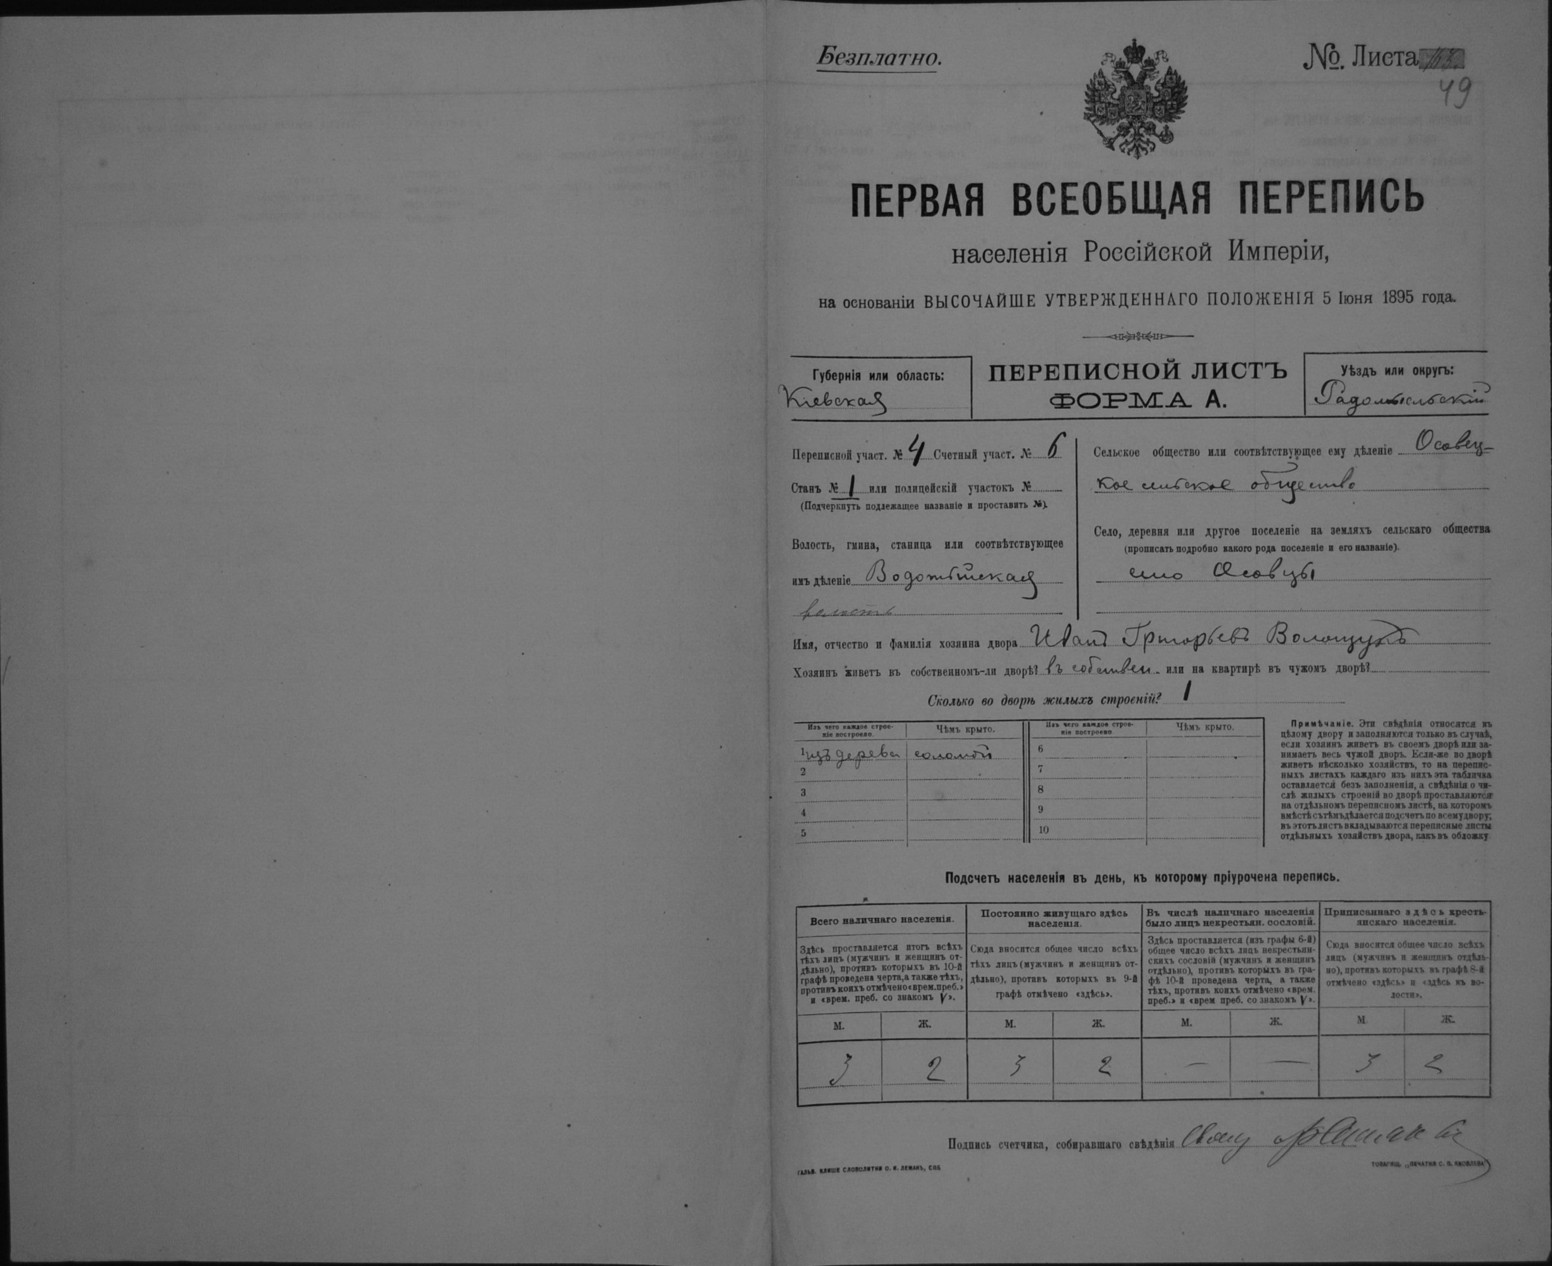 Безплатно.
№. Листа
49
ПЕРВАЯ ВСЕОБЩАЯ ПЕРЕПИСЬ
населенія Россійской Имперіи,
на основаніи ВЫСОЧАЙШЕ УТВЕРЖДЕННАГО ПОЛОЖЕНІЯ 5 Іюня 1895 года.
Губернія или область:
Кіевская
ПЕРЕПИСНОЙ ЛИСТЪ
ФОРМА А.
Уѣздъ или округъ:
Радомысльскій
Переписной участ. № 4 Счетный участ. № 6
Станъ № 1 или полицейскій участокъ №
(Подчеркнуть подлежащее названіе и проставить №).
Волость, гмина, станица или соотвѣтствующее
имъ дѣленіе Водотыйская
волость
Сельское общество или соотвѣтствующее ему дѣленіе Осовец-
кое сельское общество
Село, деревня или другое поселеніе на земляхъ сельскаго общества
(прописать подробно какого рода поселеніе и его названіе).
село Осовцы
Имя, отчество и фамилія хозяина двора Иванъ Григорьевъ Волощукъ
Хозяинъ живетъ въ собственномъ-ли дворѣ? въ собствен. или на квартирѣ въ чужомъ дворѣ?
Сколько во дворѣ жилыхъ строеній? 1
Изъ чего каждое строе-
ніе построено.
Чѣмъ крыто.
Изъ чего каждое строе-
ніе построено.
Чѣмъ крыто.
1 изъ дерева соломой
2
3
4
5
6
7
8
9
10
Примѣчаніе. Эти свѣдѣнія относятся къ
цѣлому двору и заполняются только въ случаѣ,
если хозяинъ живетъ въ своемъ дворѣ или за-
нимаетъ весь чужой дворъ. Если-же во дворѣ
живетъ нѣсколько хозяйствъ, то на перепис-
ныхъ листахъ каждаго изъ нихъ эта табличка
оставляется безъ заполненія, а свѣдѣнія о чи-
слѣ жилыхъ строеній во дворѣ проставляются
на отдѣльномъ переписномъ листѣ, на которомъ
вмѣстѣ съ тѣмъ дѣлается подсчетъ по всему двору;
въ этотъ листъ вкладываются переписные листы
отдѣльныхъ хозяйствъ двора, какъ въ обложку
Подсчетъ населенія въ день, къ которому пріурочена перепись.
Всего наличнаго населенія.
Здѣсь проставляется итогъ всѣхъ
тѣхъ лицъ (мужчинъ и женщинъ от-
дѣльно), противъ которыхъ въ 10-й
графѣ проведена черта, а также тѣхъ,
противъ коихъ отмѣчено «врем. преб.»
и «врем. преб. со знакомъ V».
Постоянно живущаго здѣсь
населенія.
Сюда вносится общее число всѣхъ
тѣхъ лицъ (мужчинъ и женщинъ от-
дѣльно), противъ которыхъ въ 9-й
графѣ отмѣчено «здѣсь».
Въ числѣ наличнаго населенія
было лицъ некрестьян. сословій.
Здѣсь проставляется (изъ графы 6-й)
общее число всѣхъ лицъ некрестьян-
скихъ сословій (мужчинъ и женщинъ
отдѣльно), противъ которыхъ въ гра-
фѣ 10-й проведена черта, а также
тѣхъ, противъ коихъ отмѣчено «врем.
преб.» и «врем преб. со знакомъ V».
Приписаннаго здѣсь кресть-
янскаго населенія.
Сюда вносится общее число всѣхъ
лицъ (мужчинъ и женщинъ отдѣль-
но), противъ которыхъ въ графѣ 8-й
отмѣчено «здѣсь» и «здѣсь въ во-
лости».
М. Ж. М. Ж. М. Ж. М. Ж.
3 2 3 2 — — 3 2
Подпись счетчика, собиравшаго свѣдѣнія
ГАЛЬВ. КЛИШЕ СЛОВОЛИТНИ О. И. ЛЕМАНЪ, СПБ.
ТОВАРИЩ. „ПЕЧАТНЯ С. П. ЯКОВЛЕВА"